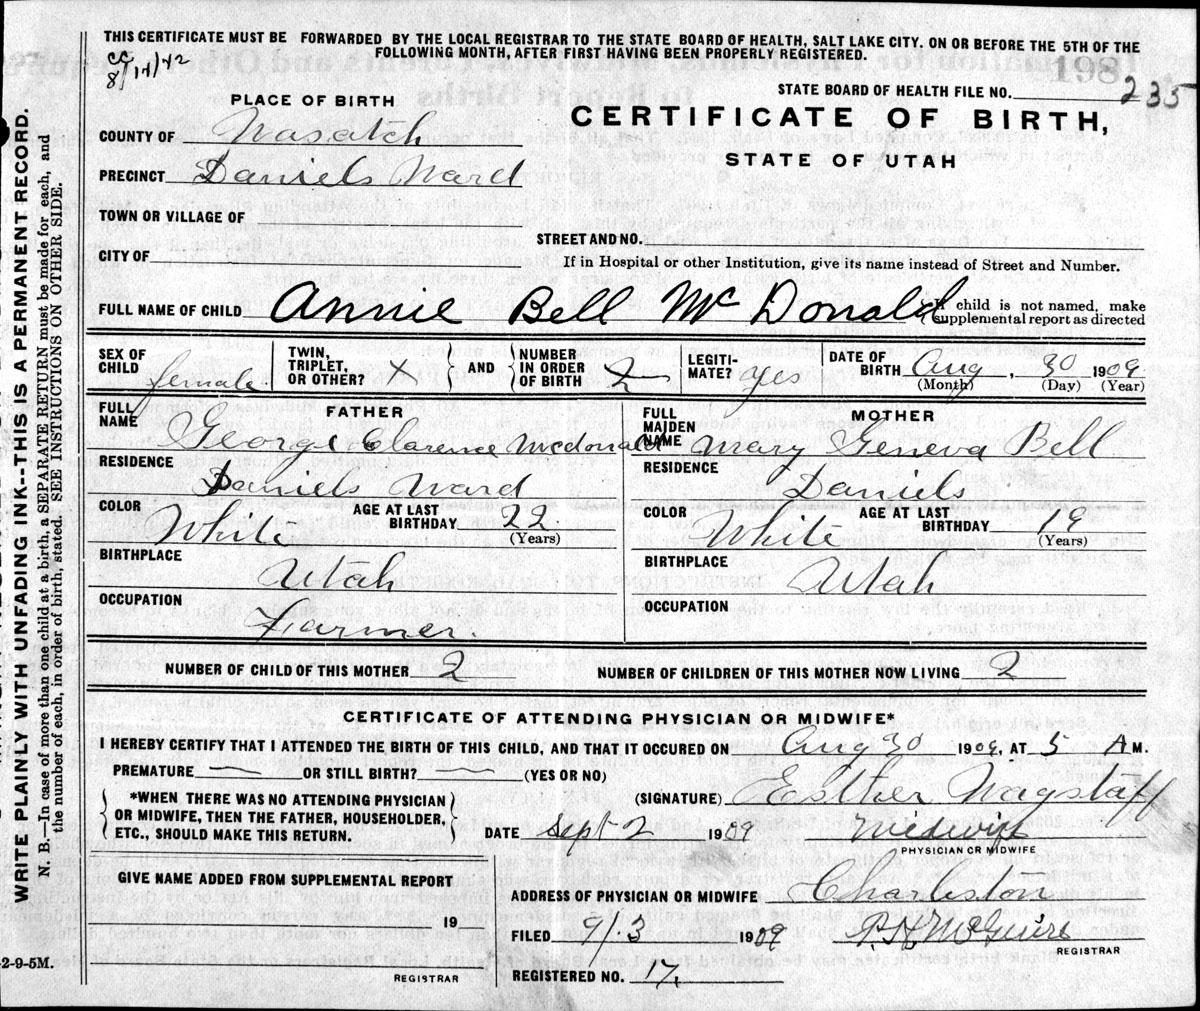 THIS CERTIFICATE MUST BE FORWARDED BY THE LOCAL REGISTRAR TO THE STATE BOARD OF HEALTH, SALT LAKE CITY, ON OR BEFORE THE 5TH OF THE
FOLLOWING MONTH, AFTER FIRST HAVING BEEN PROPERLY REGISTERED.
198
STATE BOARD OF HEALTH FILE NO. 235
PLACE OF BIRTH
CERTIFICATE OF BIRTH,
STATE OF UTAH
COUNTY OF Wasatch
PRECINCT Daniels Ward
TOWN OR VILLAGE OF
CITY OF
STREET AND NO.
If in Hospital or other Institution, give its name instead of Street and Number.
FULL NAME OF CHILD Annie Bell McDonald
If child is not named, make
supplemental report as directed
SEX OF CHILD female
TWIN, TRIPLET, OR OTHER? x
AND
NUMBER IN ORDER OF BIRTH 2
LEGITI-MATE? yes
DATE OF BIRTH Aug, 30 1909
(Month) (Day) (Year)
FATHER
FULL NAME George Clarence Mcdonald
RESIDENCE
Daniels Ward
COLOR White
AGE AT LAST BIRTHDAY 22
(Years)
BIRTHPLACE
Utah
OCCUPATION
Farmer.
MOTHER
FULL MAIDEN NAME Mary Geneva Bell
RESIDENCE
Daniels
COLOR White
AGE AT LAST BIRTHDAY 19
(Years)
BIRTHPLACE
Utah
OCCUPATION
NUMBER OF CHILD OF THIS MOTHER 2
NUMBER OF CHILDREN OF THIS MOTHER NOW LIVING 2
CERTIFICATE OF ATTENDING PHYSICIAN OR MIDWIFE*
I HEREBY CERTIFY THAT I ATTENDED THE BIRTH OF THIS CHILD, AND THAT IT OCCURED ON Aug 30 1909, AT 5 A M.
PREMATURE — OR STILL BIRTH? — (YES OR NO)
*WHEN THERE WAS NO ATTENDING PHYSICIAN
OR MIDWIFE, THEN THE FATHER, HOUSEHOLDER,
ETC., SHOULD MAKE THIS RETURN.
(SIGNATURE) Esther Wagstaff
DATE Sept 2 1909
Midwife
PHYSICIAN OR MIDWIFE
GIVE NAME ADDED FROM SUPPLEMENTAL REPORT
19
REGISTRAR
ADDRESS OF PHYSICIAN OR MIDWIFE Charleston
FILED 9/3 1909
McGuire
REGISTRAR
REGISTERED NO. 17.
2-9-5M.
WRITE PLAINLY WITH UNFADING INK--THIS IS A PERMANENT RECORD.
N. B.—In case of more than one child at a birth, a SEPARATE RETURN must be made for each, and
the number of each, in order of birth, stated. SEE INSTRUCTIONS ON OTHER SIDE.